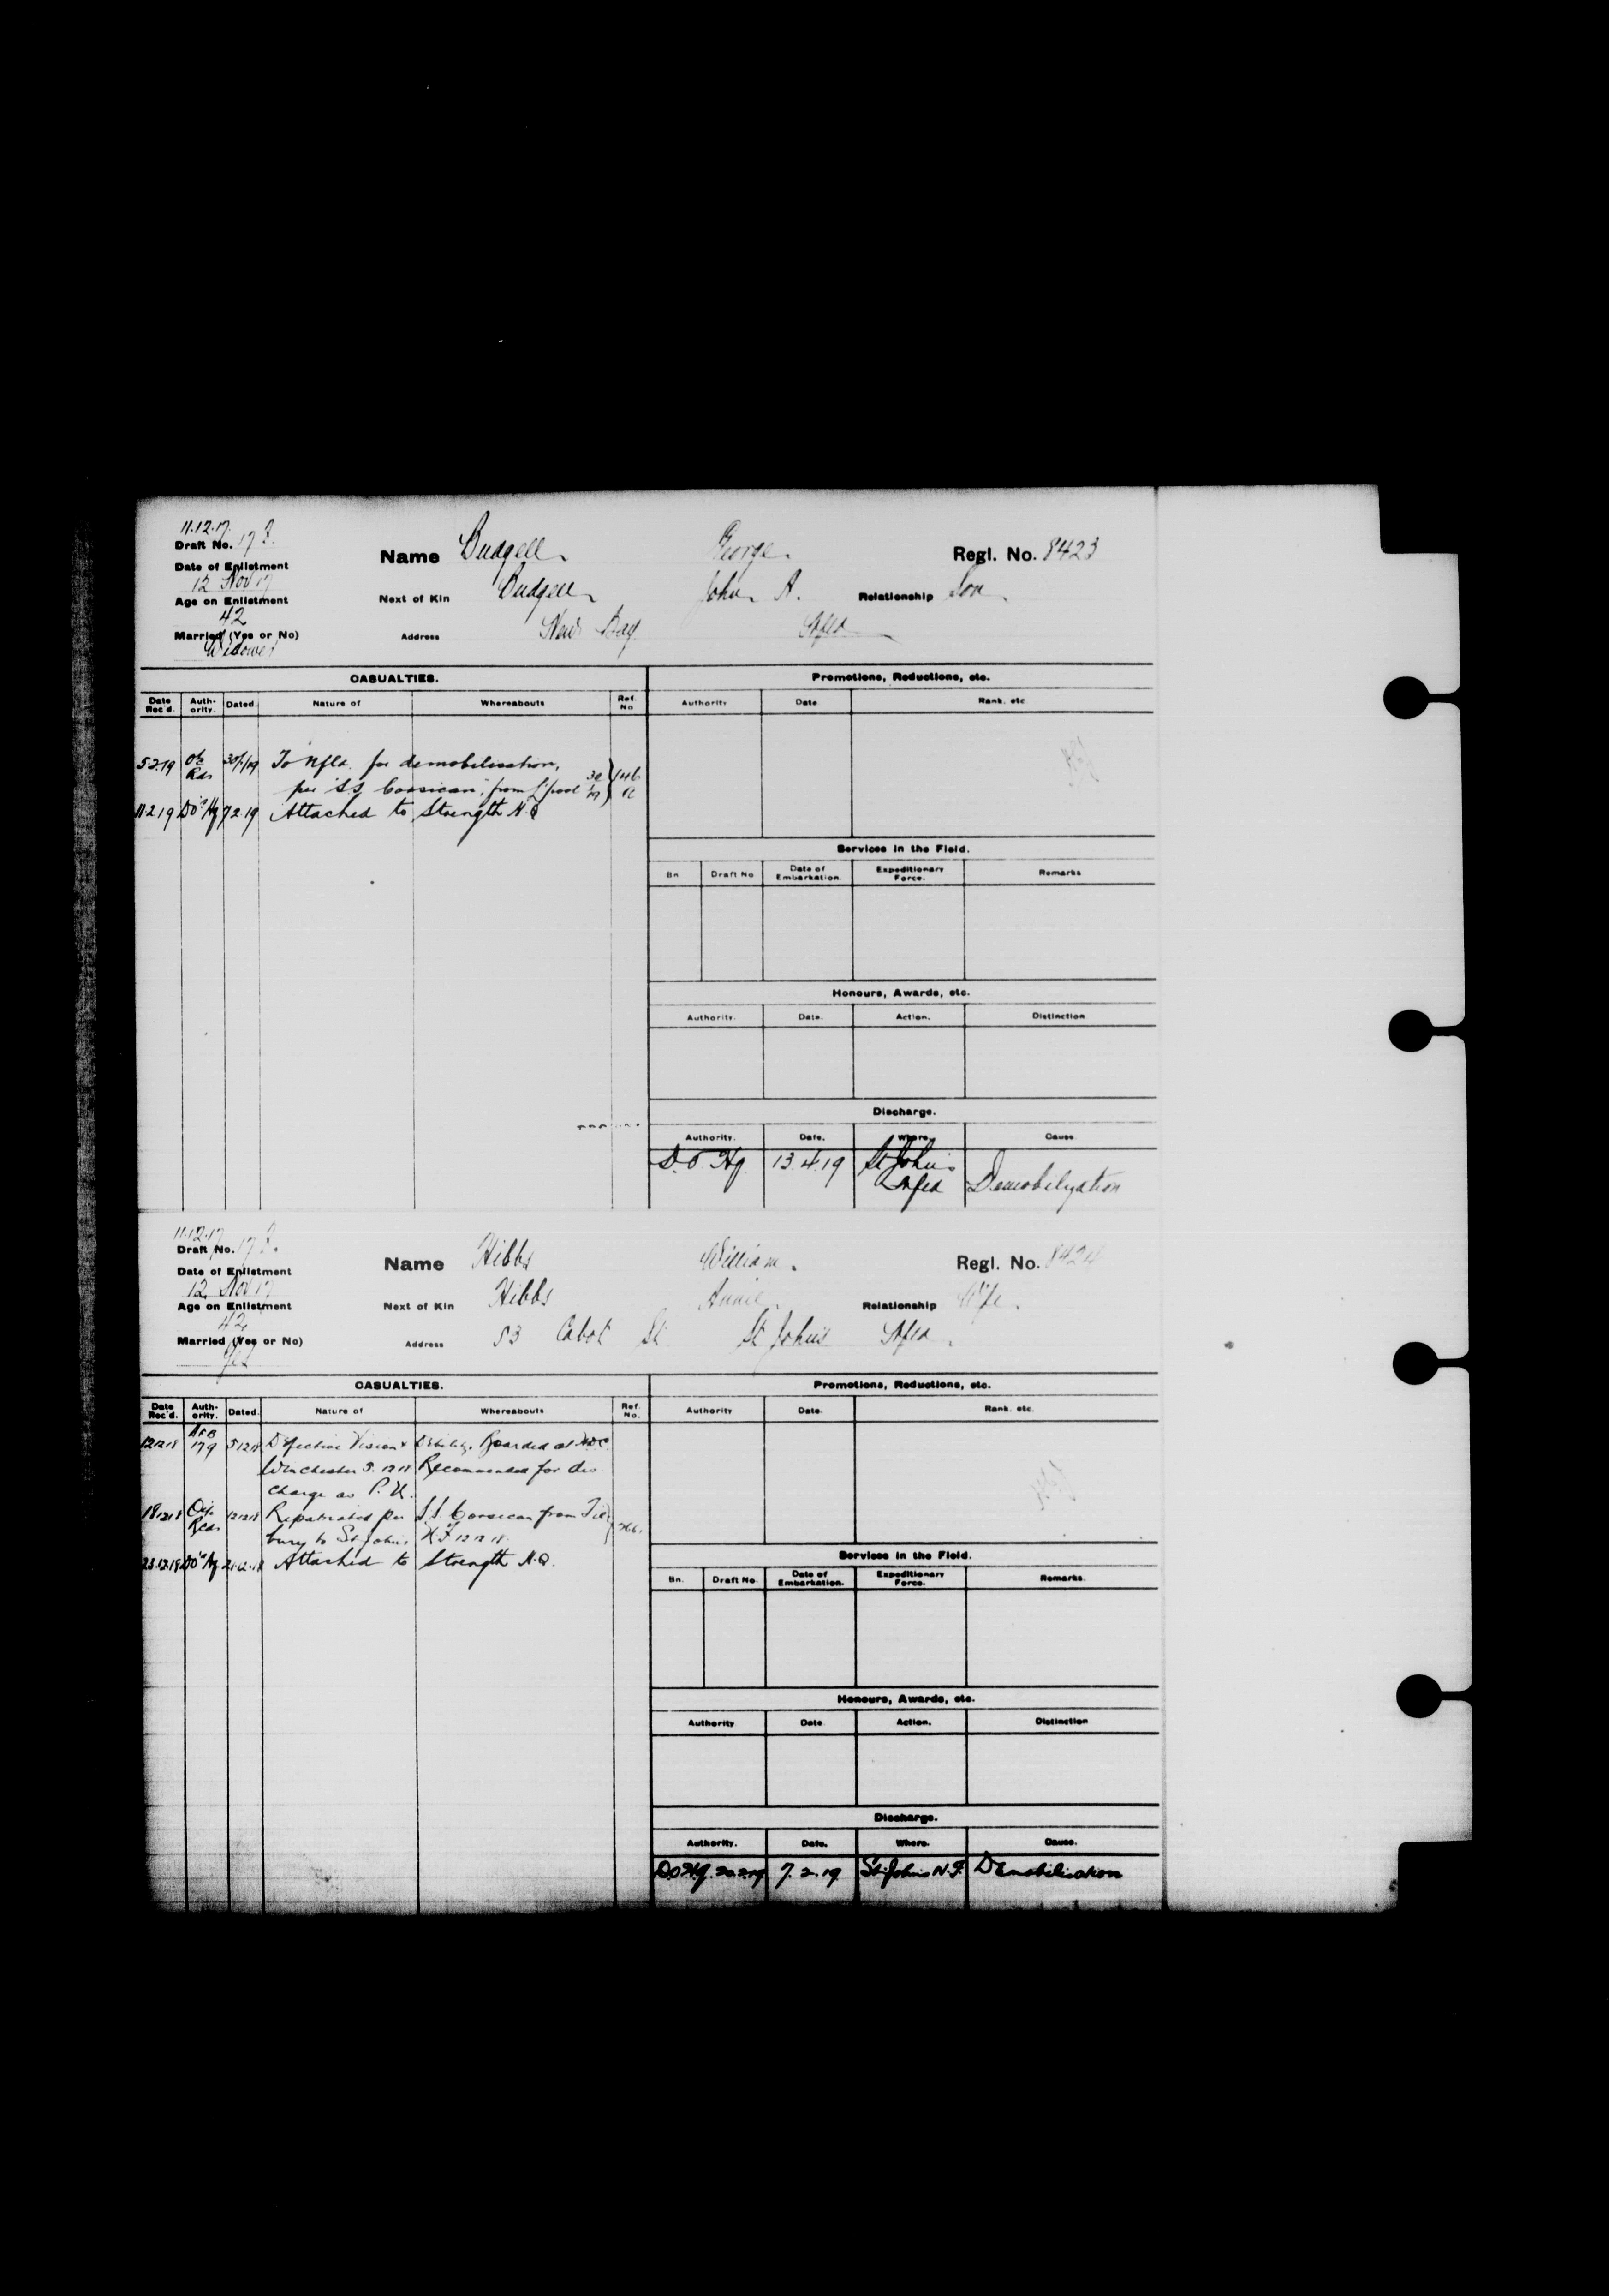 11.12.17.
Draft No. 17
Name Budgell George. Regl. No. 8423
Date of Enlistment
12 Nov 17
Next of Kin Budgell John A. Relationship Son
Age on Enlistment
42
Married (Yes or No) Address New Bay Nfld
Widower
CASUALTIES. Promotions, Reductions, etc.
Date Rec'd. Auth-ority. Dated. Nature of Whereabouts Ref. No Authority Date Rank. etc
5.2.19 30/1/19 To Nfld. for demobilisation,
per S.S. Corsican, from L'pool
11.2.19 DO Hq 7.2.19 Attached to Strength H.Q
Services in the Field.
Bn Draft No Date of Embarkation. Expeditionary Force. Remarks
Honours, Awards, etc.
Authority. Date. Action. Distinction
Discharge.
Authority. Date. Where. Cause.
D.O. Hq. 13.4.19 St John's Nfld Demobilyation
11.12.17
Draft No. 17
Name Hibbs William. Regl. No. 8424
Date of Enlistment
12 Nov 17
Next of Kin Hibbs Annie. Relationship Wife.
Age on Enlistment
42
Married (Yes or No) Address 53 Cabot St St John's Nfld.
Yes
CASUALTIES. Promotions, Reductions, etc.
Date Rec'd. Auth-ority. Dated. Nature of Whereabouts Ref. No. Authority Date. Rank. etc.
12.12.18 AFB 179 5.12.18 Defective Vision & Debility. Boarded at
Winchester 5.12.18 Recommended for dis
charge as P.U.
18.12.18 Rcds 12.12.18 Repatriated per S.S. Corsican from Til
bury to St John's N.F. 12.12.18.
23.12.18 DO Hq 21.12.18 Attached to Strength H.Q.
Services in the Field.
Bn. Draft No. Date of Embarkation. Expeditionary Force. Remarks.
Honours, Awards, etc.
Authority Date Action. Distinction
Discharge.
Authority. Date. Where. Cause.
D.O Hq. 7.2.19. St Johns N.F. Demobilisation